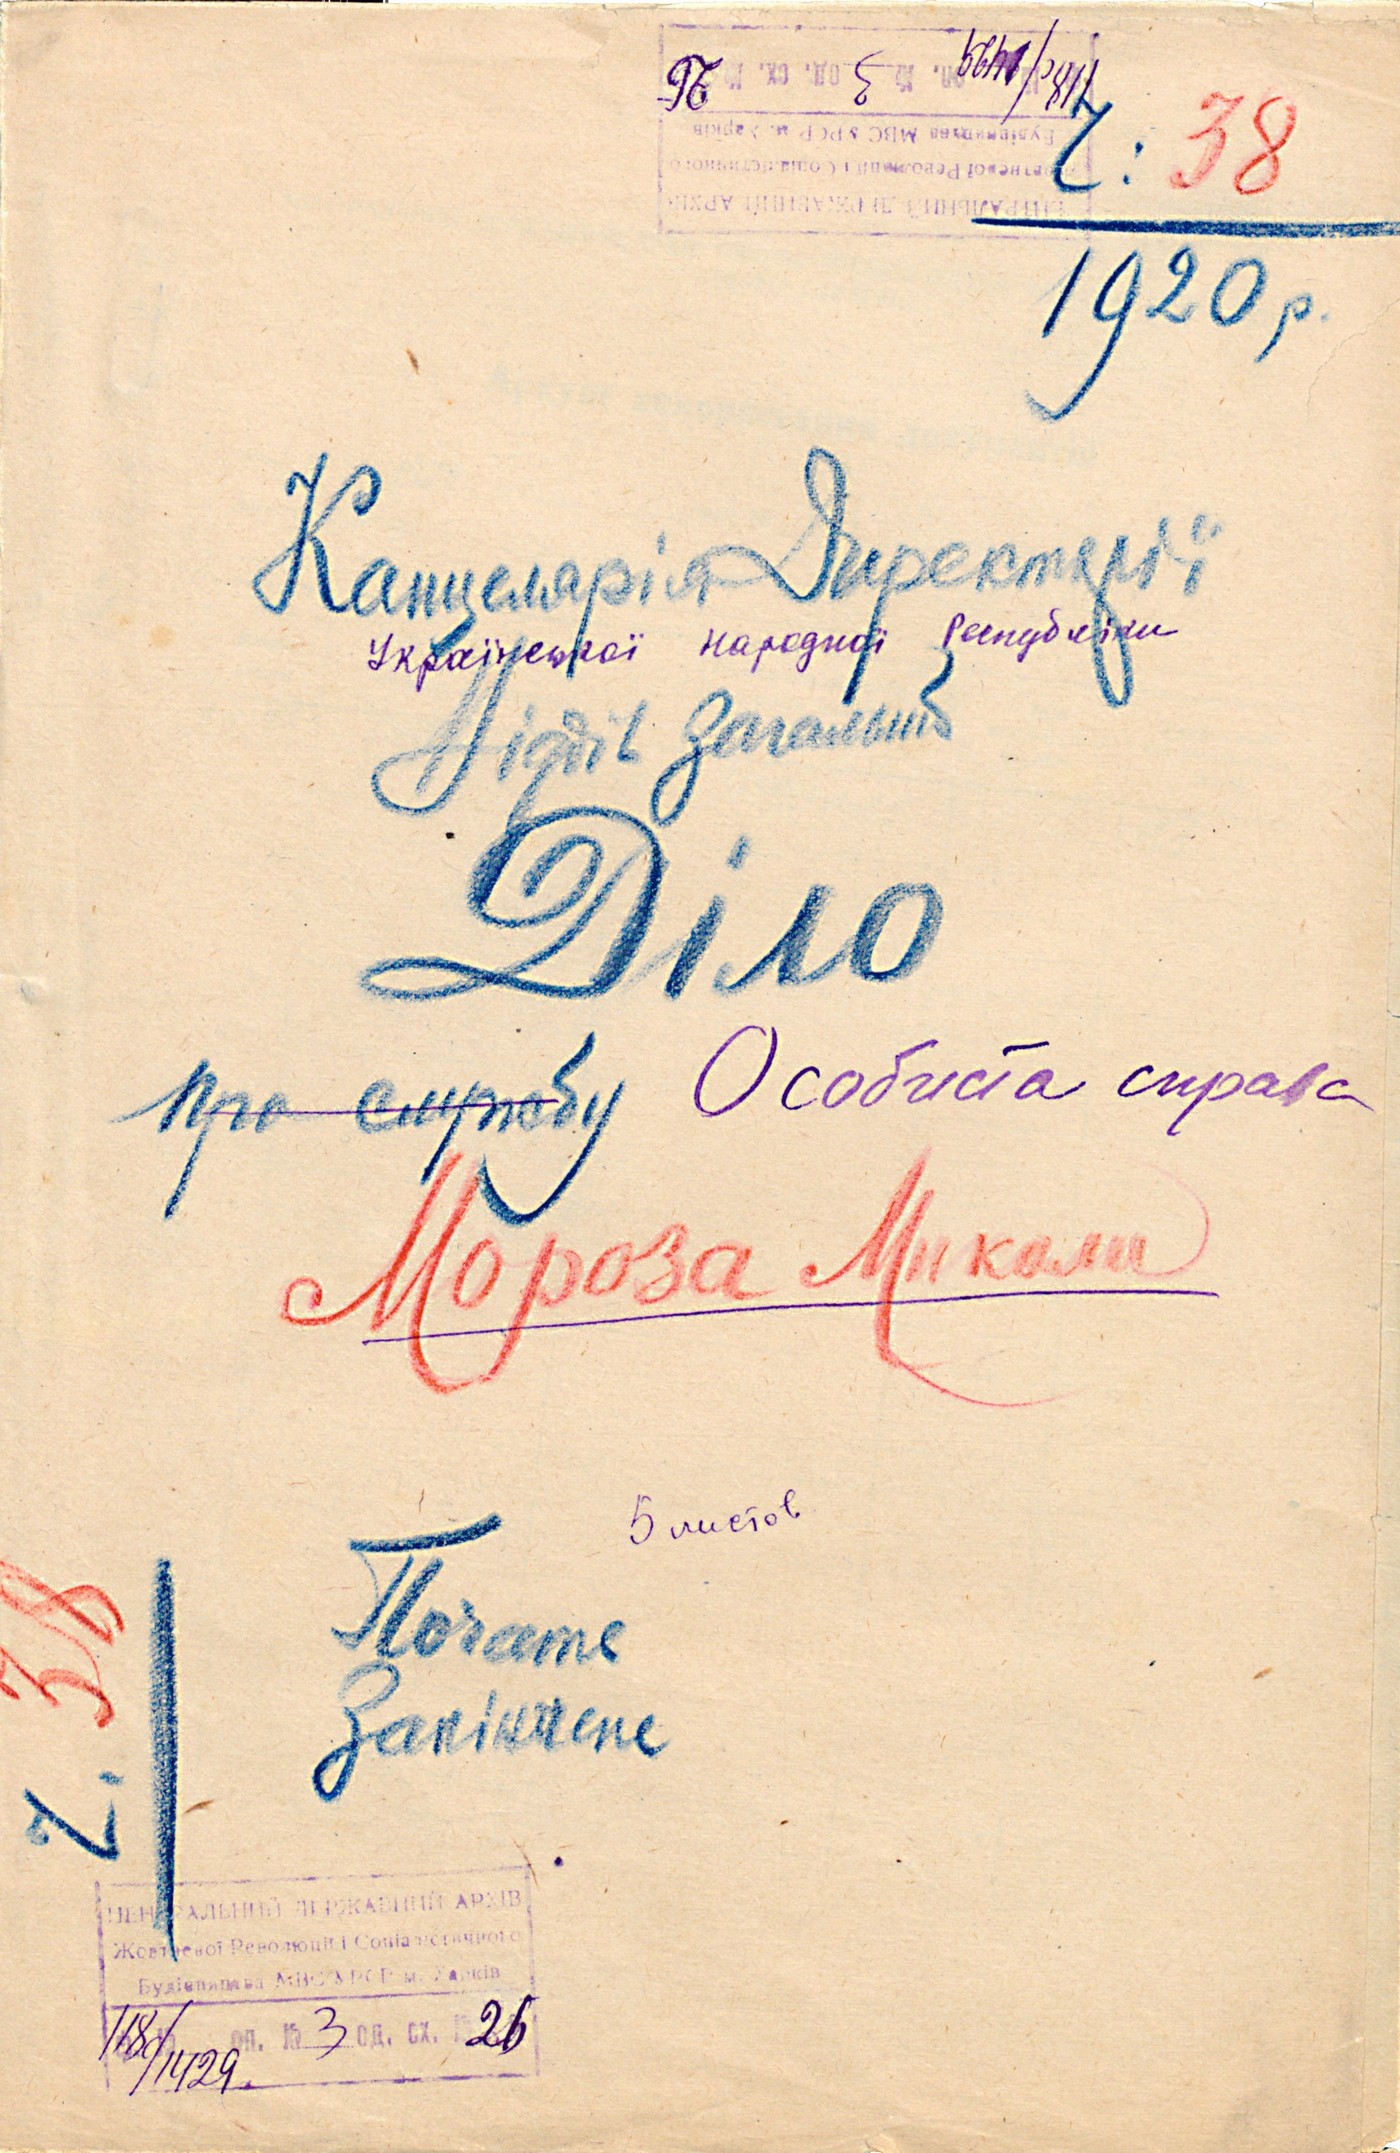 118с/1429 оп. № 3 од. сх. № 26
Будівництва МВС УРСР м. Харків
Жовтневої Революції і Соціалістичного
ЦЕНТРАЛЬНИЙ ДЕРЖАВНИЙ АРХІВ
Ч: 38
1920 р.
Канцелярія Директорії
Української Народної Республіки
Відділ Загальний
Діло
про службу Особиста справа
Мороза Миколи
5 листов
Почате
Закінчене
Ч. 38
ЦЕНТРАЛЬНИЙ ДЕРЖАВНИЙ АРХІВ
Жовтневої Революції і Соціалістичного
Будівництва МВС УРСР м. Харків
118с/1429 оп. № 3 од. сх. № 26